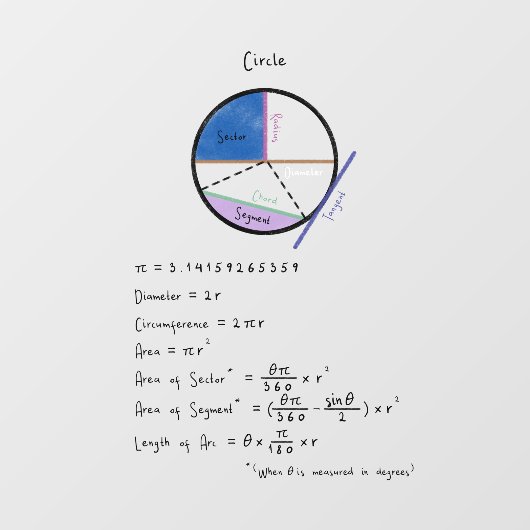 Circle
Sector
Radius
Diameter
Chord
Segment
Tangent
π = 3.14159265359
Diameter = 2r
Circumference = 2πr
Area = πr²
Area of Sector* = θπ/360 × r²
Area of Segment* = (θπ/360 - sinθ/2) × r²
Length of Arc = θ × π/180 × r
*(When θ is measured in degrees)